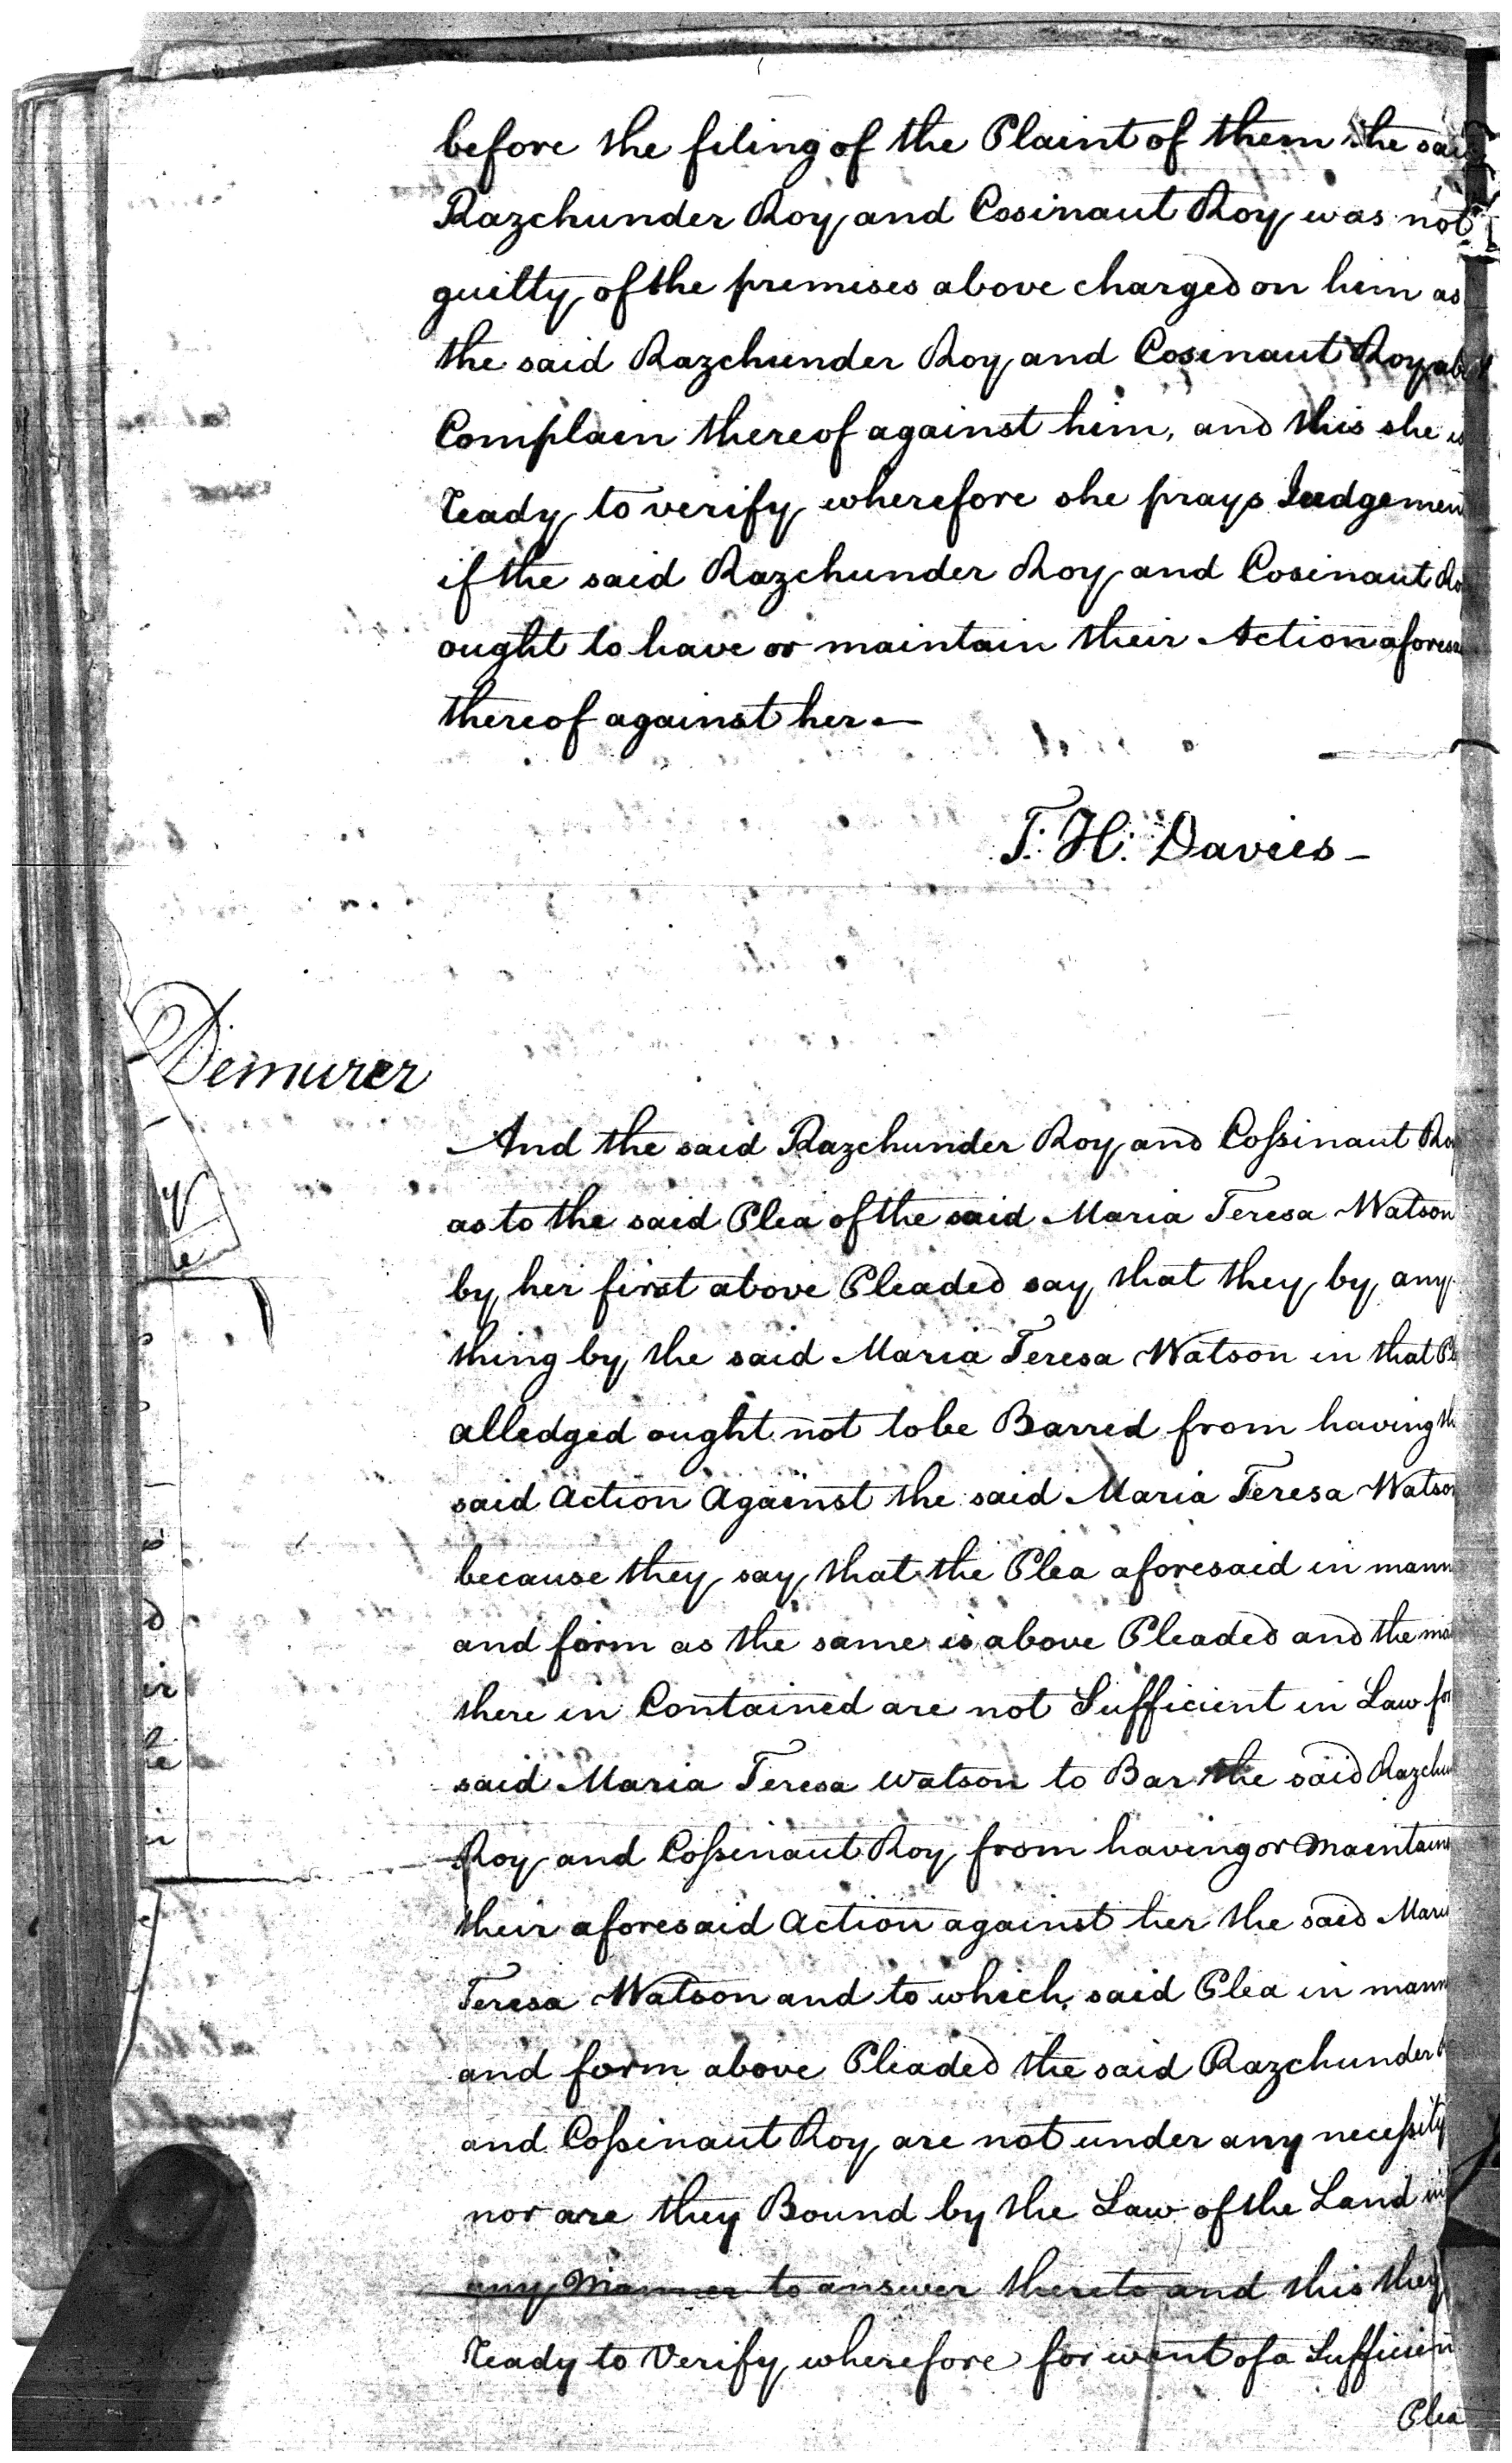 before the filing of the Plaint of them the sai
Razchunder Roy and Cosinaut Roy was not
guilty of the premises above charged on him as
the said Razchunder Roy and Cosinaut Roy ab
Complain thereof against him, and this she is
ready to verify wherefore she prays Judgemen
if the said Razchunder Roy and Cosinaut Ro
ought to have or maintain their Action afores
thereof against her —
T. H. Davies —
Demurer
And the said Razchunder Roy and Coſsinaut Roy
as to the said Plea of the said Maria Teresa Watson
by her first above Pleaded say that they by any
thing by the said Maria Teresa Watson in that Pl
alledged ought not to be Barred from having th
said Action Against the said Maria Teresa Watson
because they say that the Plea aforesaid in mann
and form as the same is above Pleaded and the ma
there in Contained are not Sufficient in Law for
said Maria Teresa Watson to Bar the said Razchu
Roy and Coſsinaut Roy from having or Maintain
their aforesaid Action against her the said Mari
Teresa Watson and to which said Plea in mann
and form above Pleaded the said Razchunder
and Coſsinaut Roy are not under any neceſsity
nor are they Bound by the Law of the Land in
any Manner to answer thereto and this they
ready to Verify wherefore for want of a Sufficien
Plea